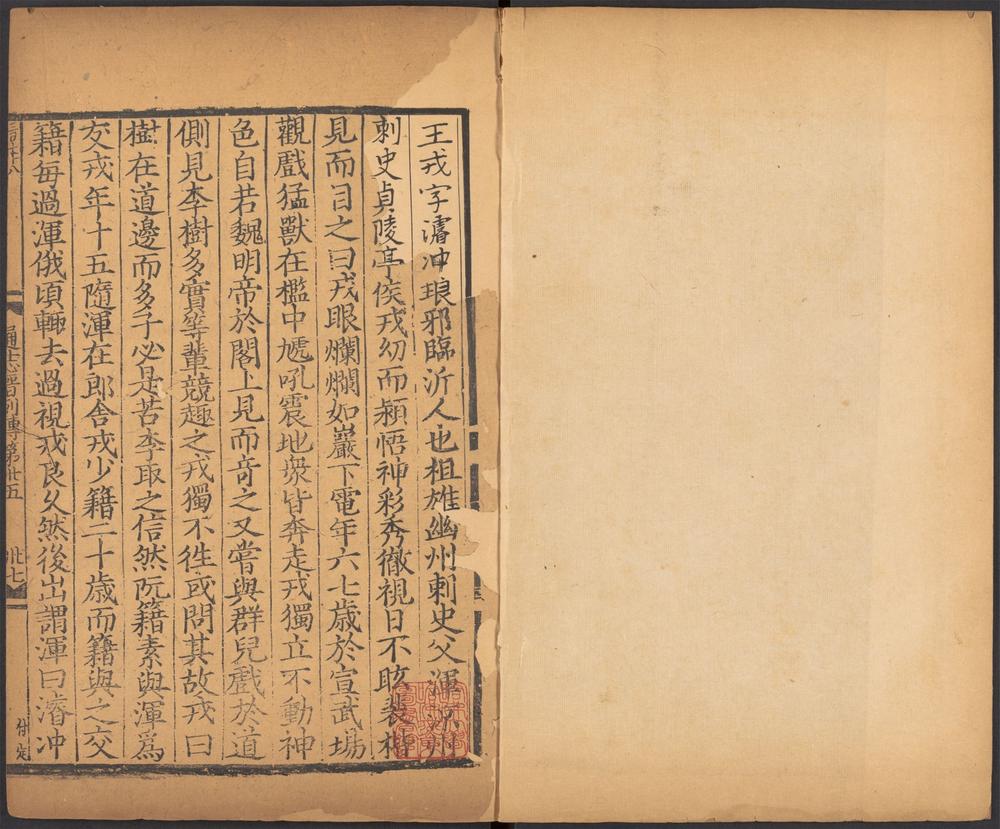 王戎字濬冲琅邪臨沂人也祖雄幽州刺史父渾涼州
刺史貞陵亭侯戎幼而穎悟神彩秀徹視日不眩裴楷
見而目之曰戎眼爛爛如巖下電年六七歲於宣武場
觀戲猛獸在檻中虓吼震地衆皆奔走戎獨立不動神
色自若魏明帝於閣上見而奇之又嘗與群兒戲於道
側見李樹多實等輩競趣之戎獨不徃或問其故戎曰
樹在道邊而多子必是苦李取之信然阮籍素與渾爲
友戎年十五隨渾在郎舍戎少籍二十歲而籍與之交
籍每過渾俄頃輒去過視戎良久然後出謂渾曰濬冲
通志晋列傳第卅五
卅七